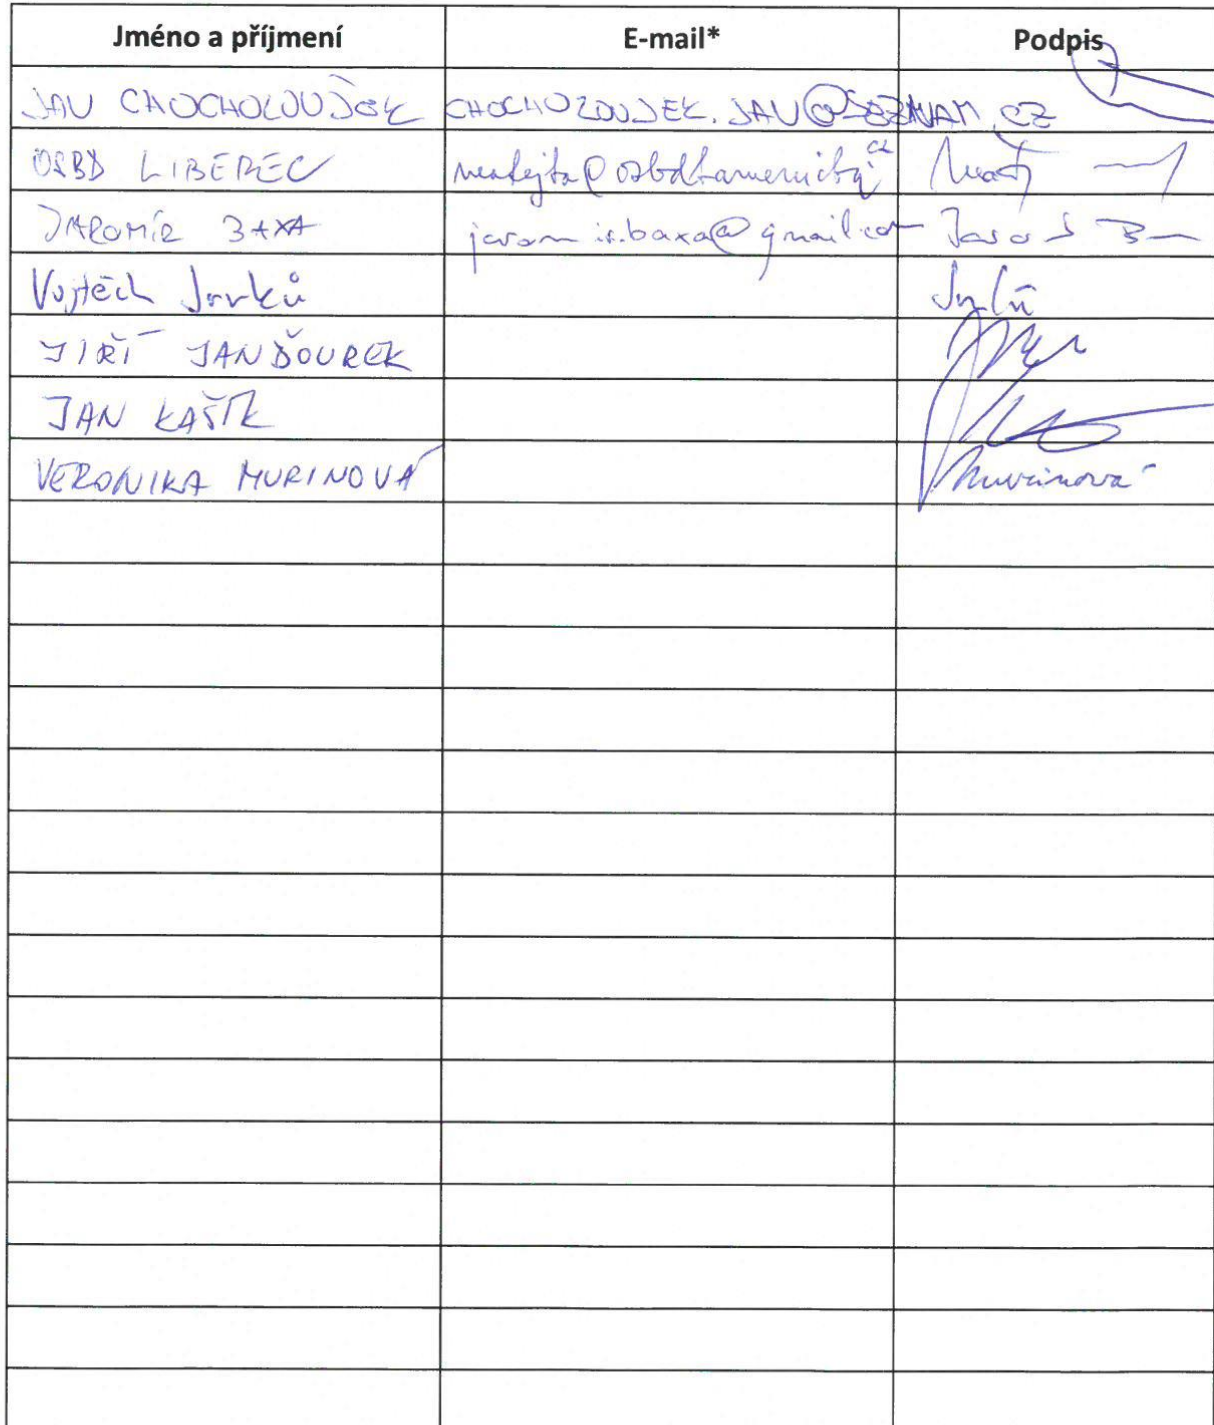 Jméno a příjmení E-mail* Podpis
JAN CHOCHOLOUŠEK CHOCHOLOUSEK.JAN@SEZNAM.CZ
OSBD LIBEREC
JAROMÍR BAXA jaromir.baxa@gmail.com
Vojtěch
JIŘÍ JANĎOUREK
JAN KAŠÍK
VERONIKA MURINOVÁ Murinová